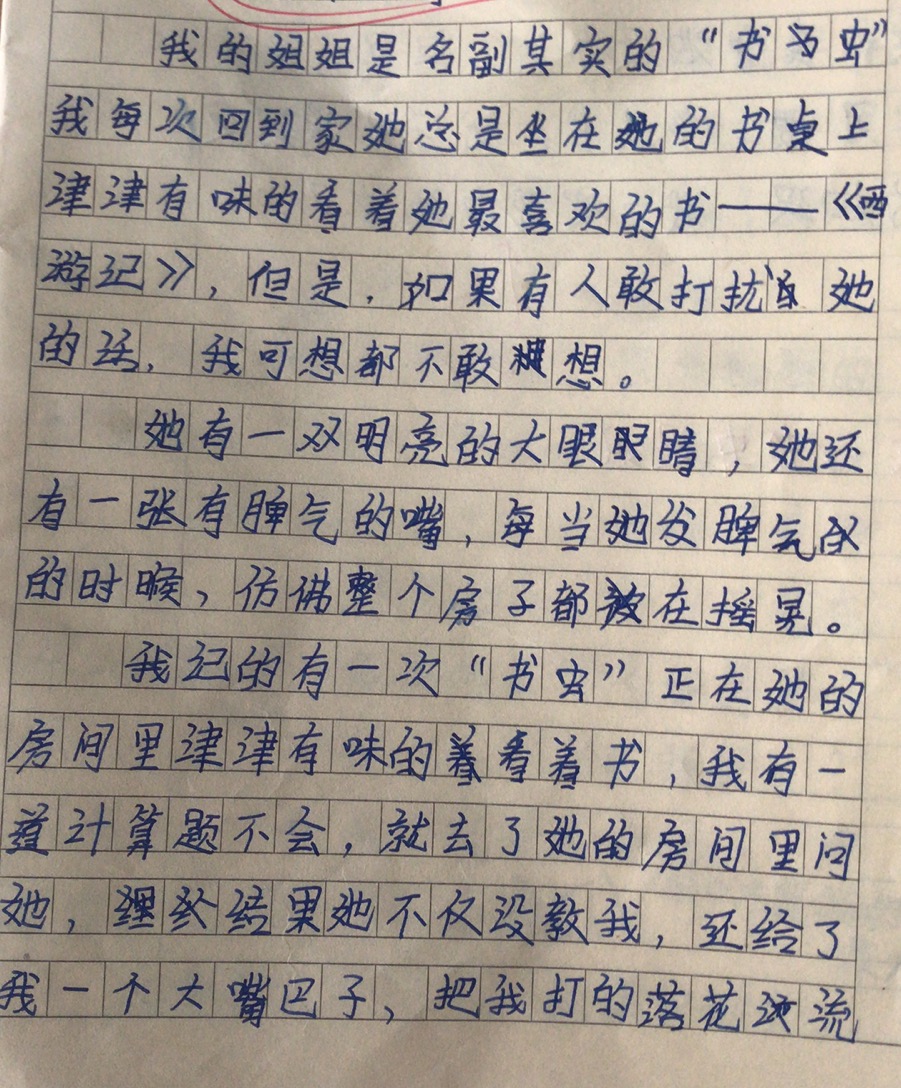 我的姐姐是名副其实的“书虫”
我每次回到家她总是坐在她的书桌上
津津有味的看着她最喜欢的书——《西
游记》，但是，如果有人敢打扰她
的话，我可想都不敢想。
她有一双明亮的大眼眼睛，她还
有一张有脾气的嘴，每当她发脾气
的时候，仿佛整个房子都在摇晃。
我记的有一次“书虫”正在她的
房间里津津有味的看着书，我有一
道计算题不会，就去了她的房间里问
她，结果她不仅没教我，还给了
我一个大嘴巴子，把我打的落花流